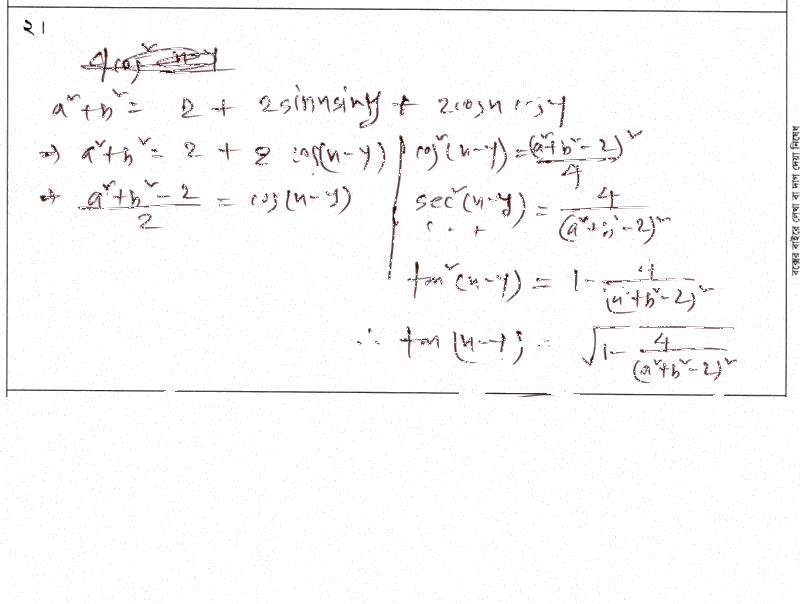 ২।
a² + b² = 2 + 2sinxsiny + 2cosx cosy
⇒ a² + b² = 2 + 2 cos(x-y)
⇒ (a² + b² - 2)/2 = cos(x-y)
cos²(x-y) = (a² + b² - 2)²/4
sec²(x-y) = 4/(a² + b² - 2)²
tan²(x-y) = 1 - 4/(a² + b² - 2)²
∴ tan(x-y) = √(1 - 4/(a² + b² - 2)²)
বক্সের বাইরে লেখা বা দাগ দেয়া নিষেধ